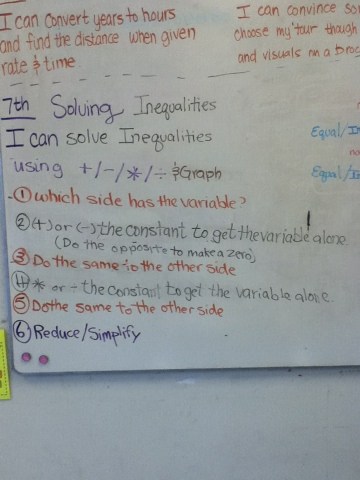 I can convert years to hours
and find the distance when given
rate & time
I can convince so
choose my tour though
and visuals on a broc
7th Solving Inequalities
I can solve Inequalities
using +/-/*/÷ & Graph
① which side has the variable?
② (+) or (-) the constant to get the variable alone
(Do the opposite to make a zero)
③ Do the same to the other side
④ * or ÷ the constant to get the variable alone.
⑤ Do the same to the other side
⑥ Reduce/Simplify
Equal/
no
Equal/